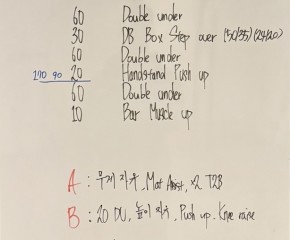 60 Double under
30 DB Box Step over (50/35) (24/20)
60 Double under
20 Handstand Push up
60 Double under
10 Bar Muscle up
A : 무게 지지, Mat Assist, x2 T2B
B : 20 DU, 높이 지지, Push up. Knee raise